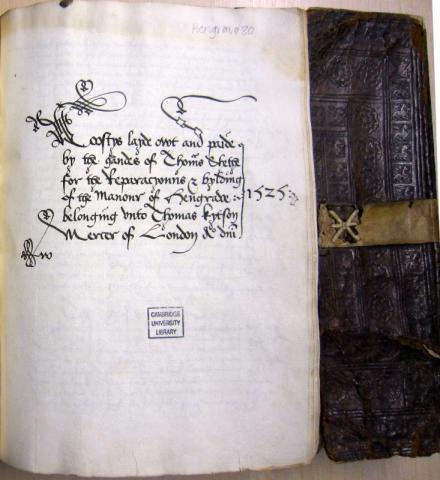 Hengrave 80
Coostys layde owt and paide
by the handes of Thoms Shethe
for the Reparacyonns & bylding
of the Manour of Hengrave
1525
belonging vnto Thomas kytson
Mercer of London
CAMBRIDGE
UNIVERSITY
LIBRARY